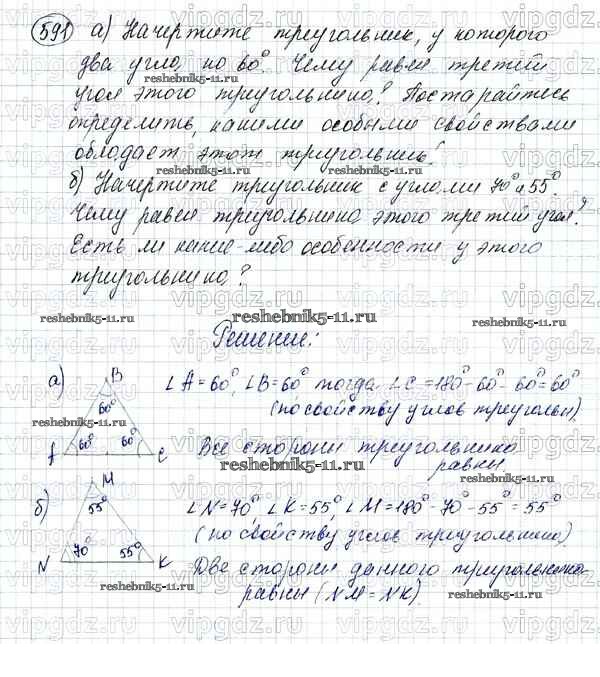 591 а) Начертите треугольник, у которого
два угла по 60°. Чему равен третий
угол этого треугольника? Постарайтесь
определить, какими особыми свойствами
обладает этот треугольник.
б) Начертите треугольник с углами 70° и 55°.
Чему равен треугольника этого третий угол?
Есть ли какие-либо особенности у этого
треугольника?
Решение:
а) B ∠A = 60°, ∠B = 60° тогда ∠C = 180° - 60° - 60° = 60°
60° (по свойству углов треугольн)
60° 60°
A C Все стороны треугольника
равны
б) M ∠N = 70° ∠K = 55°, ∠M = 180° - 70° - 55° = 55°
55° (по свойству углов треугольника)
70° 55°
N K Две стороны данного треугольника
равны (NM = NK).
vipgdz.ru
reshebnik5-11.ru